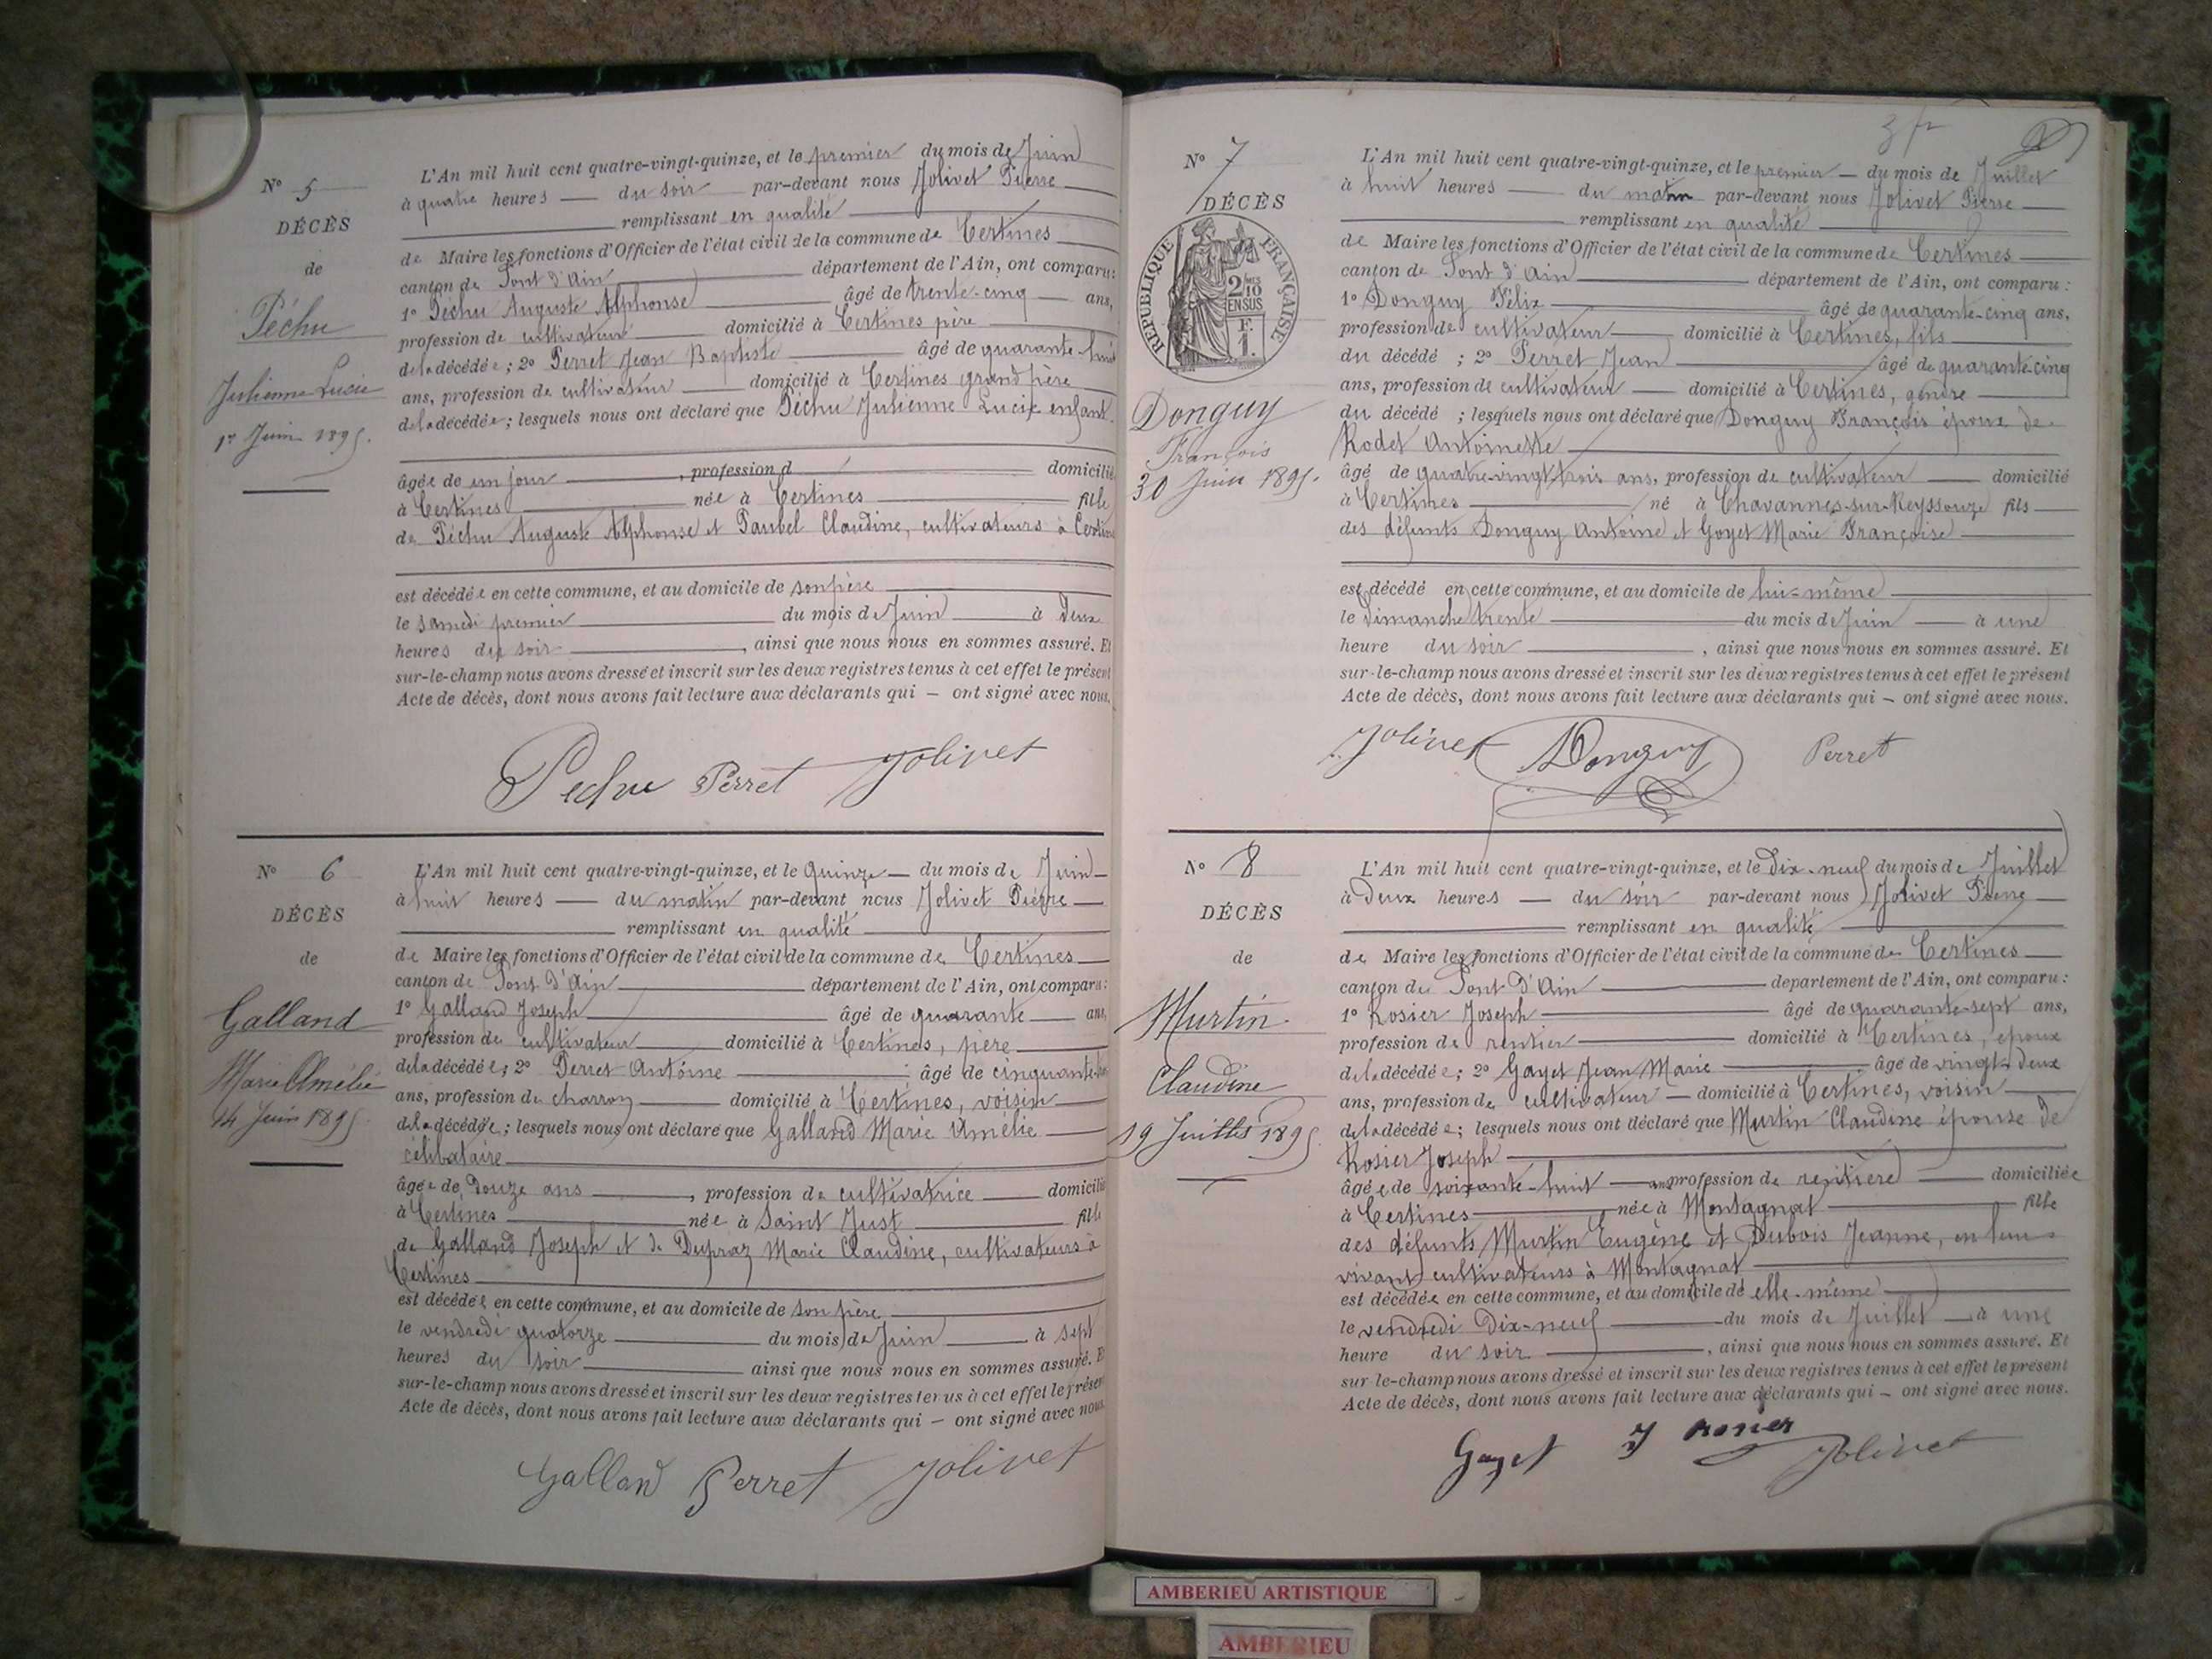 N° 5
DÉCÈS
de
Péchu
Julienne Lucie
1er Juin 1895.
L'An mil huit cent quatre-vingt-quinze, et le premier du mois de Juin
à quatre heures du soir par-devant nous Jolivet Pierre
remplissant en qualité
de Maire les fonctions d'Officier de l'état civil de la commune de Certines
canton de Pont d'Ain département de l'Ain, ont comparu :
1° Péchu Auguste Alphonse âgé de trente-cinq ans,
profession de cultivateur domicilié à Certines père
de la décédée ; 2° Perret Jean Baptiste âgé de quarante-huit
ans, profession de cultivateur domicilié à Certines grand père
de la décédée ; lesquels nous ont déclaré que Péchu Julienne Lucie enfant.
âgée de un jour , profession d domicilié
à Certines née à Certines fille
de Péchu Auguste Alphonse et Paubel Claudine, cultivateurs à Certines
est décédée en cette commune, et au domicile de son père
le samedi premier du mois de Juin à deux
heures du soir , ainsi que nous nous en sommes assuré. Et
sur-le-champ nous avons dressé et inscrit sur les deux registres tenus à cet effet le présent
Acte de décès, dont nous avons fait lecture aux déclarants qui – ont signé avec nous.
Péchu Perret Jolivet
N° 6
DÉCÈS
de
Galland
Marie Amélie
14 Juin 1895.
L'An mil huit cent quatre-vingt-quinze, et le quinze du mois de Juin
à huit heures du matin par-devant nous Jolivet Pierre
remplissant en qualité
de Maire les fonctions d'Officier de l'état civil de la commune de Certines
canton de Pont d'Ain département de l'Ain, ont comparu :
1° Galland Joseph âgé de quarante ans,
profession de cultivateur domicilié à Certines, père
de la décédée ; 2° Perret Antoine âgé de cinquante-
ans, profession de charron domicilié à Certines, voisin
de la décédée ; lesquels nous ont déclaré que Galland Marie Amélie
célibataire
âgée de douze ans , profession de cultivatrice domicilié
à Certines née à Saint Just fille
de Galland Joseph et de Dupraz Marie Claudine, cultivateurs à
Certines
est décédée en cette commune, et au domicile de son père
le vendredi quatorze du mois de Juin à sept
heures du soir ainsi que nous nous en sommes assuré. Et
sur-le-champ nous avons dressé et inscrit sur les deux registres tenus à cet effet le présent
Acte de décès, dont nous avons fait lecture aux déclarants qui – ont signé avec nous.
Galland Perret Jolivet
N° 7
DÉCÈS
RÉPUBLIQUE FRANÇAISE
2/10 EN SUS
F. 1.
Donguy
François
30 Juin 1895.
L'An mil huit cent quatre-vingt-quinze, et le premier du mois de Juillet
à huit heures du matin par-devant nous Jolivet Pierre
remplissant en qualité
de Maire les fonctions d'Officier de l'état civil de la commune de Certines
canton de Pont d'Ain département de l'Ain, ont comparu :
1° Donguy Félix âgé de quarante-cinq ans,
profession de cultivateur domicilié à Certines, fils
du décédé ; 2° Perret Jean âgé de quarante-cinq
ans, profession de cultivateur domicilié à Certines, gendre
du décédé ; lesquels nous ont déclaré que Donguy François époux de
Rodet Antoinette
âgé de quatre-vingt-trois ans, profession de cultivateur domicilié
à Certines né à Chavannes-sur-Reyssouze fils
des défunts Donguy Antoine et Goyet Marie Françoise
est décédé en cette commune, et au domicile de lui-même
le dimanche trente du mois de Juin à une
heure du soir , ainsi que nous nous en sommes assuré. Et
sur-le-champ nous avons dressé et inscrit sur les deux registres tenus à cet effet le présent
Acte de décès, dont nous avons fait lecture aux déclarants qui – ont signé avec nous.
Jolivet Donguy Perret
N° 8
DÉCÈS
de
Murtin
Claudine
19 Juillet 1895.
L'An mil huit cent quatre-vingt-quinze, et le dix-neuf du mois de Juillet
à deux heures du soir par-devant nous Jolivet Pierre
remplissant en qualité
de Maire les fonctions d'Officier de l'état civil de la commune de Certines
canton de Pont d'Ain département de l'Ain, ont comparu :
1° Rosier Joseph âgé de quarante-sept ans,
profession de rentier domicilié à Certines, époux
de la décédée ; 2° Gayet Jean Marie âgé de vingt-deux
ans, profession de cultivateur domicilié à Certines, voisin
de la décédée ; lesquels nous ont déclaré que Murtin Claudine épouse de
Rosier Joseph
âgée de soixante-huit ans profession de rentière domiciliée
à Certines née à Montagnat fille
des défunts Murtin Eugène et Dubois Jeanne, en leur
vivant cultivateurs à Montagnat
est décédée en cette commune, et au domicile de elle-même
le vendredi dix-neuf du mois de Juillet à une
heure du soir , ainsi que nous nous en sommes assuré. Et
sur-le-champ nous avons dressé et inscrit sur les deux registres tenus à cet effet le présent
Acte de décès, dont nous avons fait lecture aux déclarants qui – ont signé avec nous.
Gayet J Rosier Jolivet
AMBERIEU ARTISTIQUE
AMBERIEU